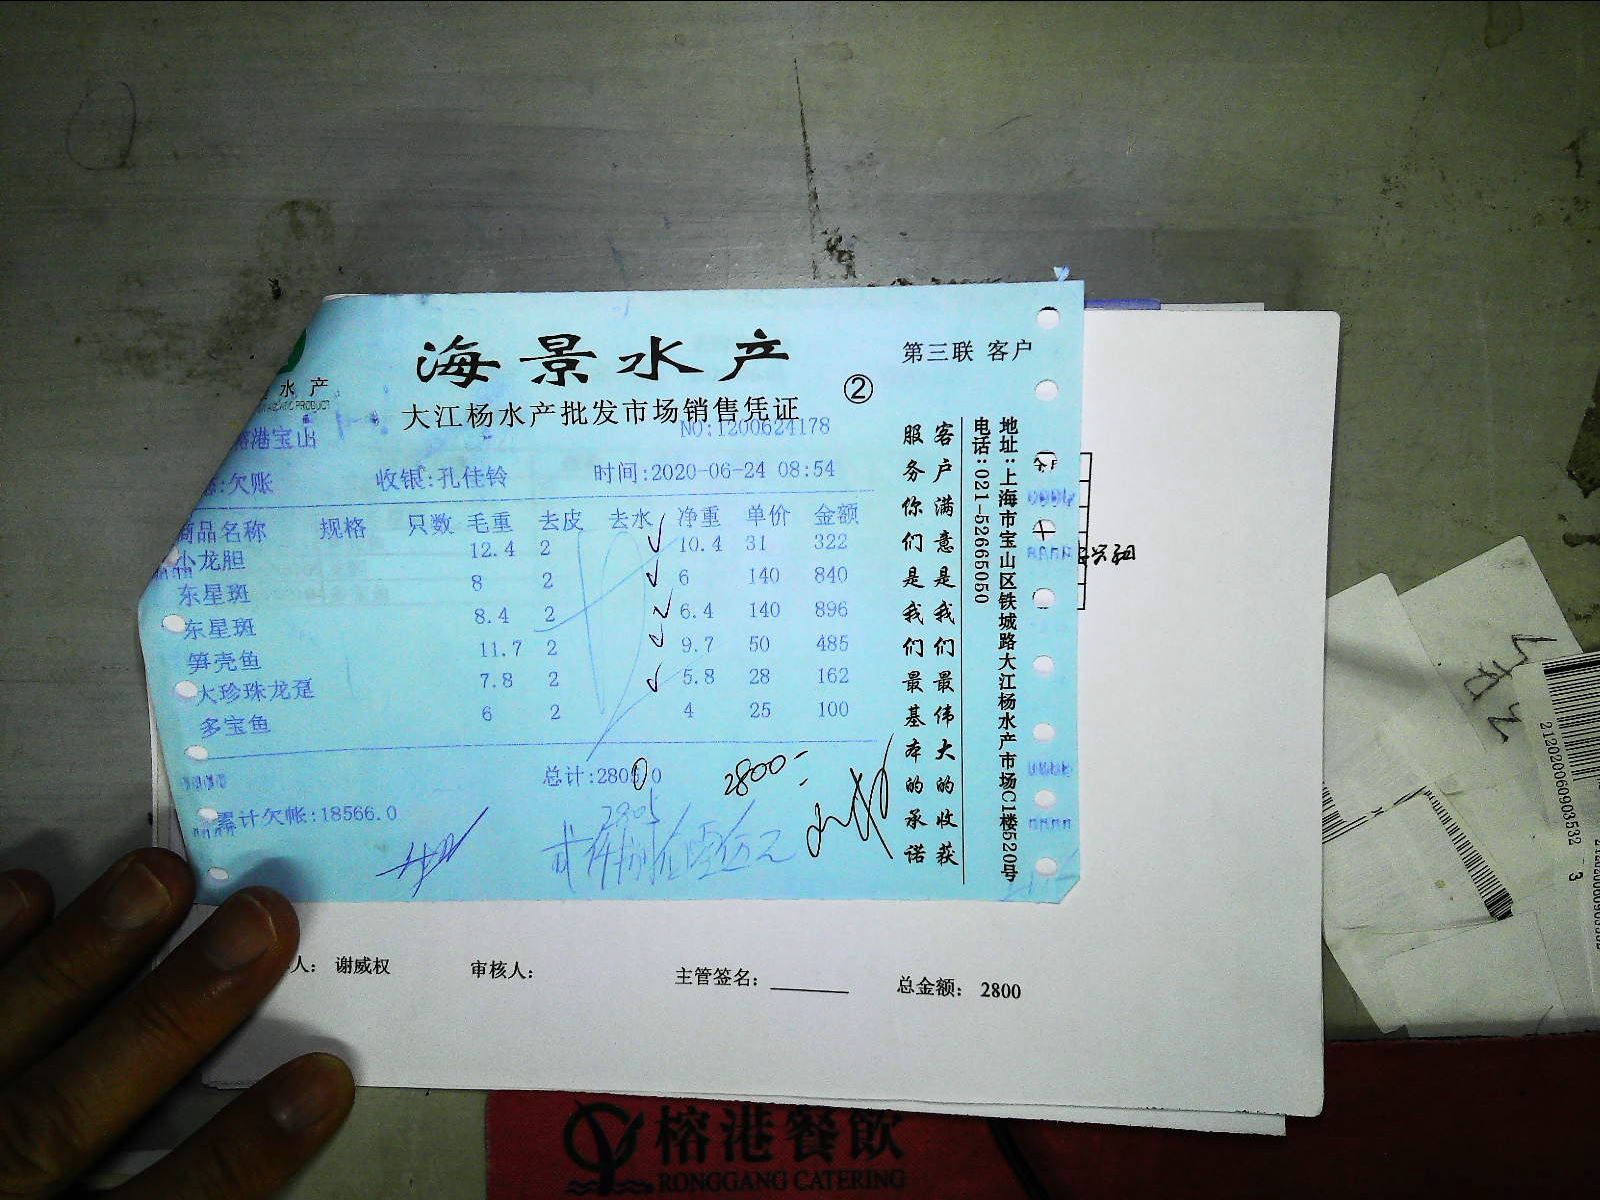 水产
海景水产
②
第三联 客户
大江杨水产批发市场销售凭证
榕港宝山
NO:1200624178
欠账
收银:孔佳铃
时间:2020-06-24 08:54
商品名称 规格 只数 毛重 去皮 去水 净重 单价 金额
小龙胆 12.4 2 10.4 31 322
东星斑 8 2 6 140 840
东星斑 8.4 2 6.4 140 896
笋壳鱼 11.7 2 9.7 50 485
大珍珠龙趸 7.8 2 5.8 28 162
多宝鱼 6 2 4 25 100
总计:2805.0
2800
累计欠帐:18566.0
2805
客户满意是我们最伟大的收获
服务你们是我们最基本的承诺
地址:上海市宝山区铁城路大江杨水产市场C1楼520号
电话:021-52665050
人: 谢威权
审核人:
主管签名:
总金额: 2800
2120200609035323 - 3
榕港餐飲
RONGGANG CATERING